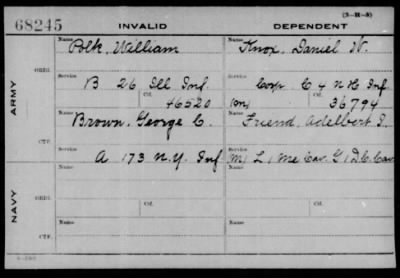 (3-H-8)
68245 INVALID DEPENDENT
Name Name
Polk, William Knox, Daniel W.
ORIG.
Service Service
B 26 Ill Inf Corp C 4 N.H. Inf
Ctf. Ctf.
46520 36794
ARMY
Name Name
Brown, George C. Friend, Adelbert
CTF.
Service Service
A 173 N.Y. Inf M, L, 1 Me Cav. G, 1 D.C. Cav
Name Ctf. Name Ctf.
ORIG.
NAVY
Name Name
CTF.